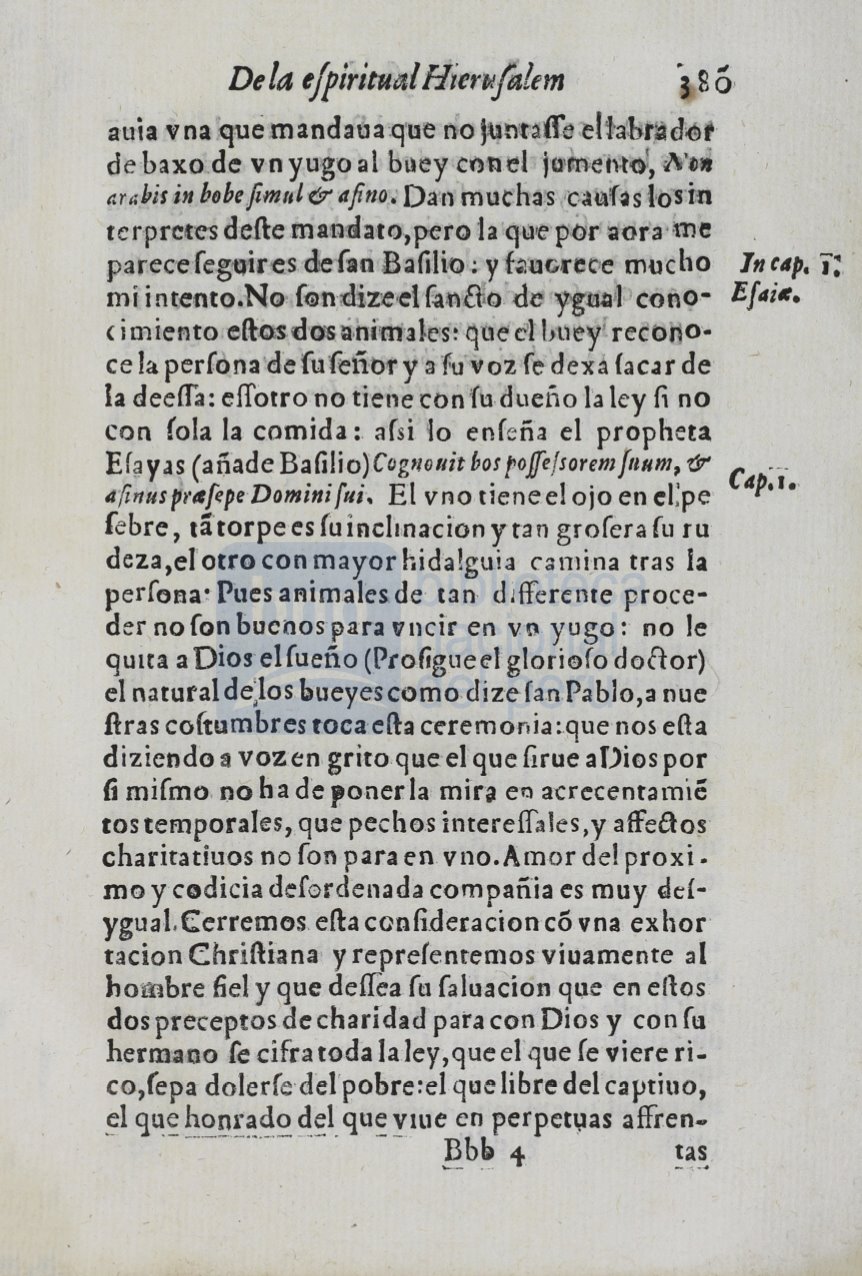 De la eſpiritual Hieruſalem 380
auia vna que mandaua que no juntaſſe el labrador
debaxo de vn yugo al buey con el jumento, Non
arabis in bobe ſimul & aſino. Dan muchas cauſas los in
terpretes deſte mandato, pero la que por aora me
parece ſeguir es de ſan Baſilio: y fauorece mucho
In cap. 1.
mi intento. No ſon dize el ſancto de ygual cono-
Eſaiæ.
cimiento eſtos dos animales: que el buey recono-
ce la perſona de ſu ſeñor y a ſu voz ſe dexa ſacar de
la deeſſa: eſſotro no tiene con ſu dueño la ley ſi no
con ſola la comida: aſsi lo enſeña el propheta
Eſayas (añade Baſilio) Cognouit bos poſſeſsorem ſuum, &
aſinus præſepe Domini ſui. El vno tiene el ojo en el pe
Cap. 1.
ſebre, tã torpe es ſu inclinacion y tan groſera ſu ru
deza, el otro con mayor hidalguia camina tras la
perſona. Pues animales de tan differente proce-
der no ſon buenos para vncir en vn yugo: no le
quita a Dios el ſueño (Proſigue el glorioſo doctor)
el natural de los bueyes como dize ſan Pablo, a nue
ſtras coſtumbres toca eſta ceremonia: que nos eſta
diziendo a voz en grito que el que ſirue a Dios por
ſi miſmo no ha de poner la mira en acrecentamiẽ
tos temporales, que pechos intereſſales, y affectos
charitatiuos no ſon para en vno. Amor del proxi-
mo y codicia deſordenada compañia es muy deſ-
ygual. Cerremos eſta conſideracion cõ vna exhor
tacion Chriſtiana y repreſentemos viuamente al
hombre fiel y que deſſea ſu ſaluacion que en eſtos
dos preceptos de charidad para con Dios y con ſu
hermano ſe cifra toda la ley, que el que ſe viere ri-
co, ſepa dolerſe del pobre: el que libre del captiuo,
el que honrado del que viue en perpetuas affren-
Bbb 4 tas